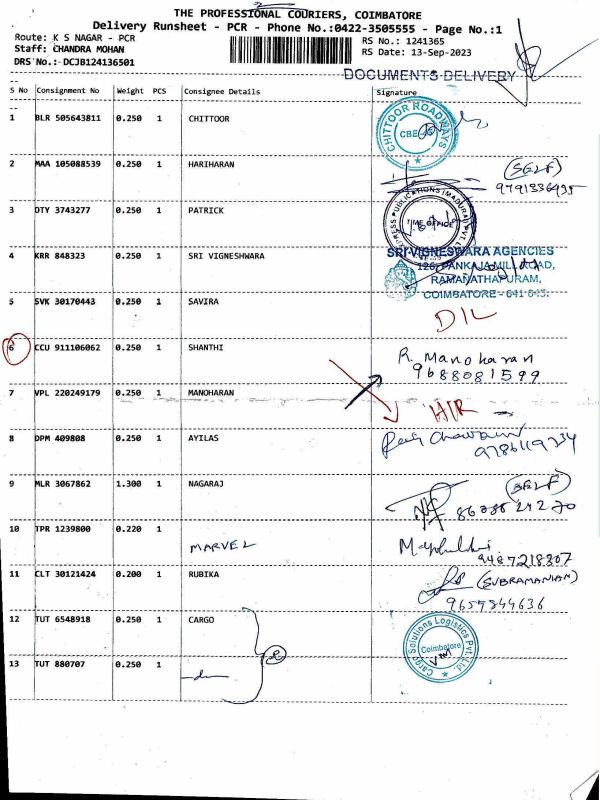 THE PROFESSIONAL COURIERS, COIMBATORE
Delivery Runsheet - PCR - Phone No.:0422-3505555 - Page No.:1
Route: K S NAGAR - PCR RS No.: 1241365
Staff: CHANDRA MOHAN RS Date: 13-Sep-2023
DRS No.:-DCJB124136501
DOCUMENTS DELIVERY
S No Consignment No Weight PCS Consignee Details Signature
1 BLR 505643811 0.250 1 CHITTOOR
CHITTOOR ROADWAYS
CBE
2 MAA 105088539 0.250 1 HARIHARAN
(SELF)
9791336495
3 DTY 3743277 0.250 1 PATRICK
EXPRESS PUBLICATIONS (MADURAI) PVT. LTD.
TIME OFFICE
4 KRR 848323 0.250 1 SRI VIGNESHWARA
SRI VIGNESWARA AGENCIES
126, PANKAJA MILL ROAD,
RAMANATHAPURAM,
COIMBATORE - 641 045.
5 SVK 30170443 0.250 1 SAVIRA
DIL
6 CCU 911106062 0.250 1 SHANTHI
R. Manoharan
9688081599
7 VPL 220249179 0.250 1 MANOHARAN
H/R
8 DPM 409808 0.250 1 AYILAS
9786119234
9 MLR 3067862 1.300 1 NAGARAJ
(SELF)
10 TPR 1239800 0.220 1
MARVEL
9487218807
11 CLT 30121424 0.200 1 RUBIKA
(SUBRAMANIAN)
9659844636
12 TUT 6548918 0.250 1 CARGO
Cargo Solutions Logistics Pvt. Ltd.
Coimbatore
13 TUT 880707 0.250 1
-do-
2